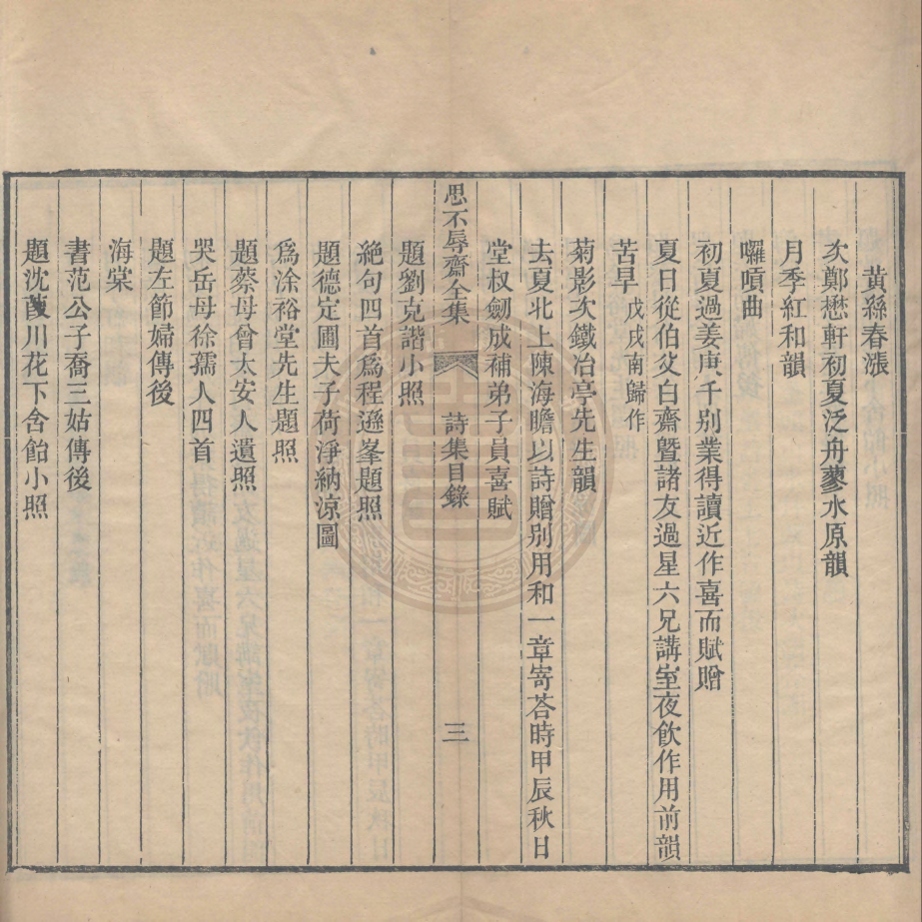 黃縣春漲
次鄭懋軒初夏泛舟蓼水原韻
月季紅和韻
囉嗊曲
初夏過姜庚千別業得讀近作喜而賦贈
夏日從伯父白齋暨諸友過星六兄講室夜飲作用前韻
苦旱戊戌南歸作
菊影次鐵冶亭先生韻
去夏北上陳海瞻以詩贈別用和一章寄荅時甲辰秋日
堂叔劒成補弟子員喜賦
思不辱齋全集 詩集目錄 三
題劉克諧小照
絶句四首爲程遜峯題照
題德定圃夫子荷淨納涼圖
爲涂裕堂先生題照
題蔡母曾太安人遺照
哭岳母徐孺人四首
題左節婦傳後
海棠
書范公子喬三姑傳後
題沈葭川花下含飴小照